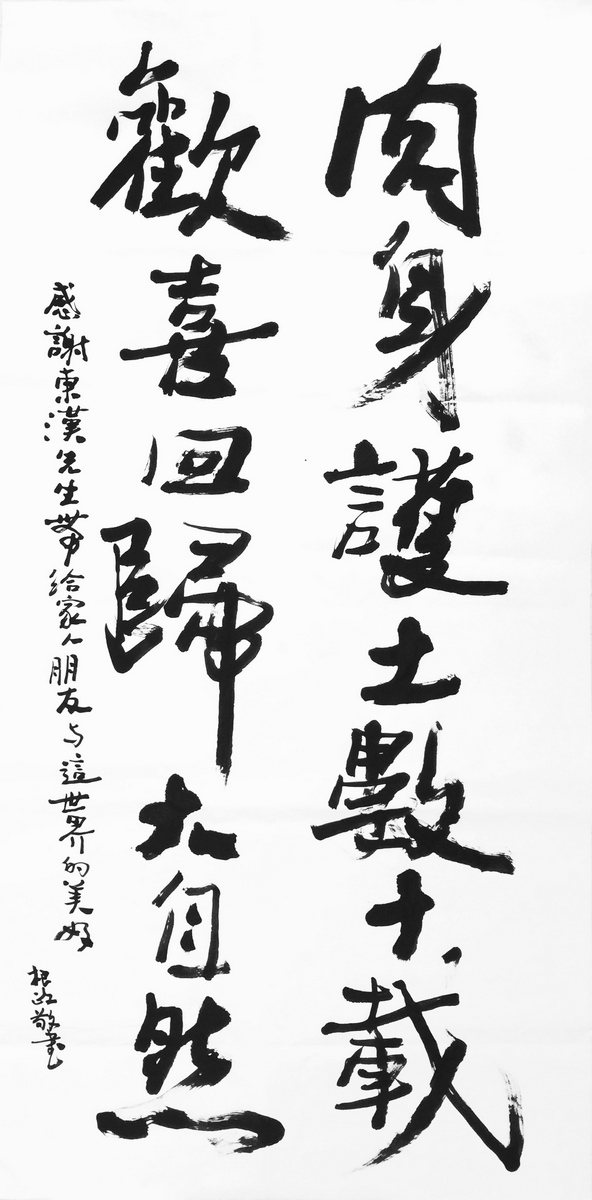 肉身護土數十載
歡喜回歸大自然
感謝東漢先生帶給家人朋友與這世界的美好
敬書